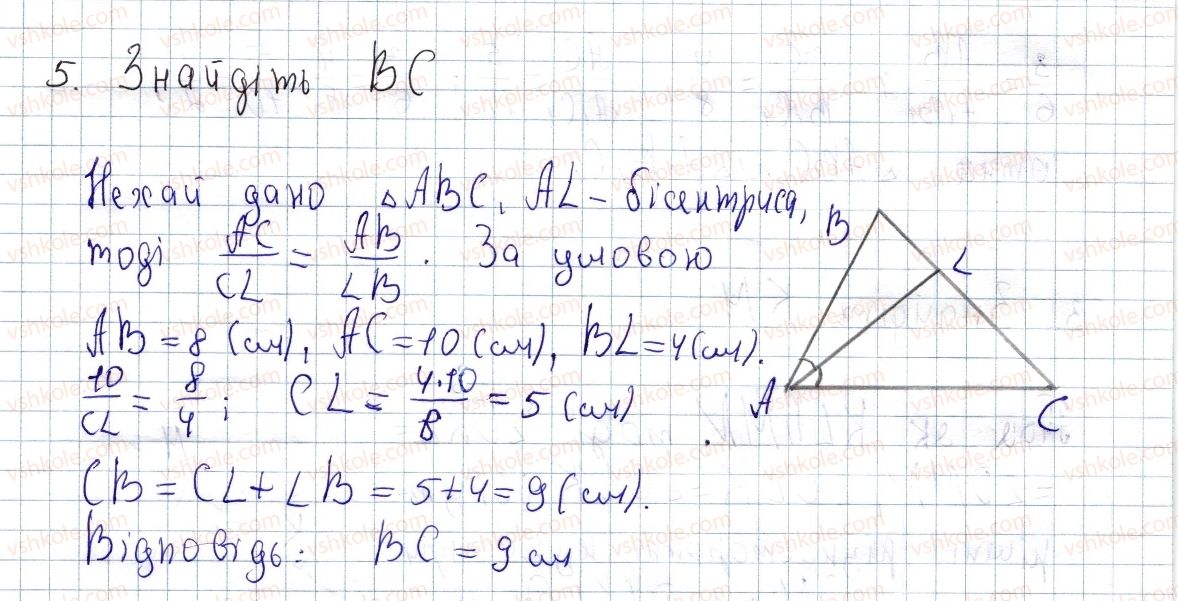 5. Знайдіть BC
Нехай дано △ABC, AL - бісектриса,
тоді AC/CL = AB/LB. За умовою
AB = 8 (см), AC = 10 (см), BL = 4 (см).
10/CL = 8/4; CL = 4·10/8 = 5 (см)
CB = CL + LB = 5 + 4 = 9 (см).
Відповідь: BC = 9 см
B
L
A
C
vshkole.com